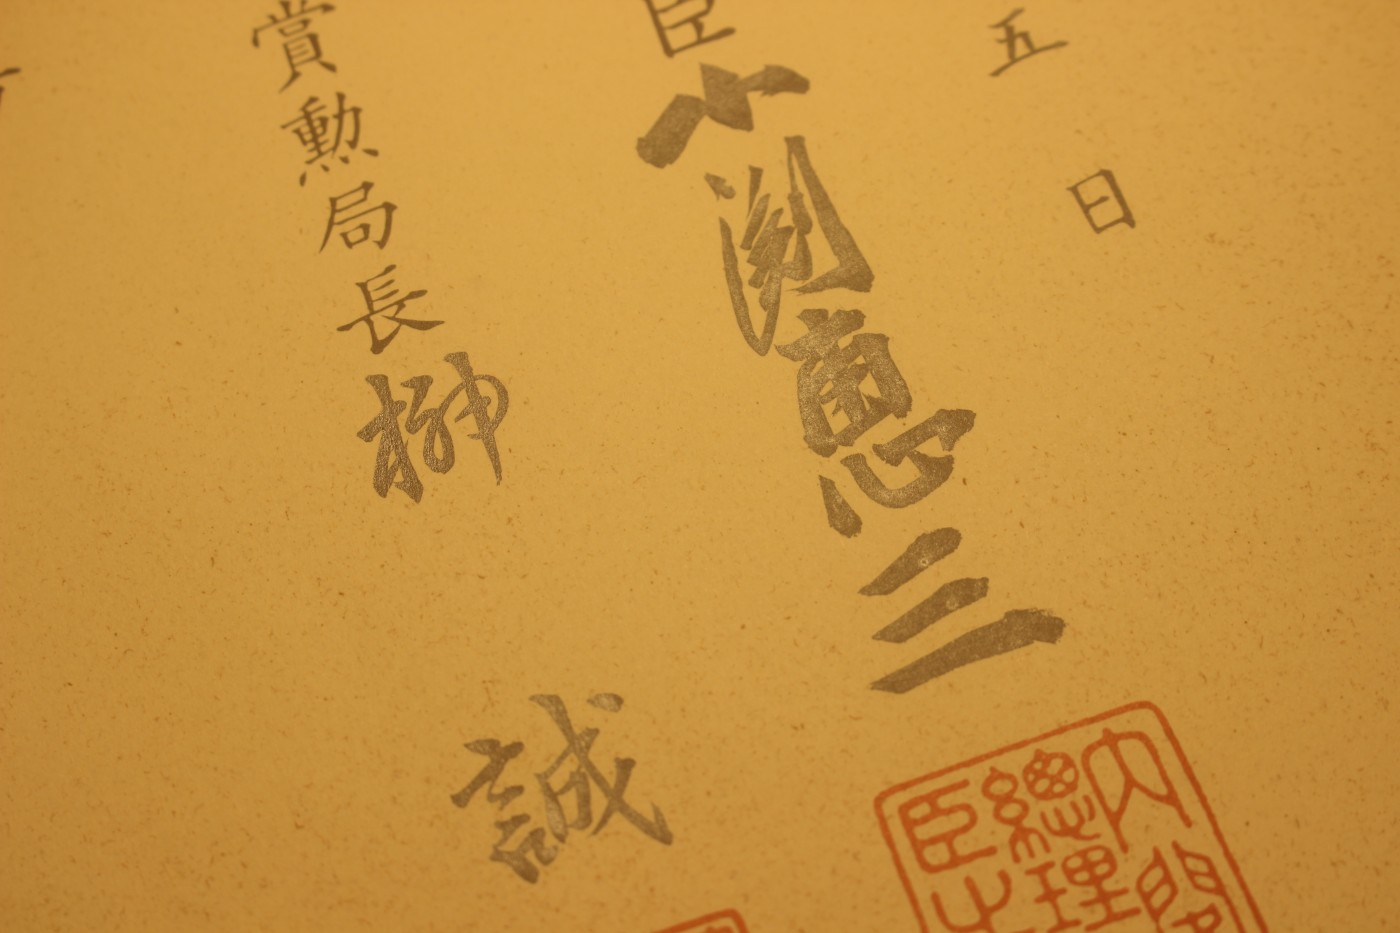 五日
臣 小渕恵三
内閣
總理
臣之
賞勲局長 榊 誠